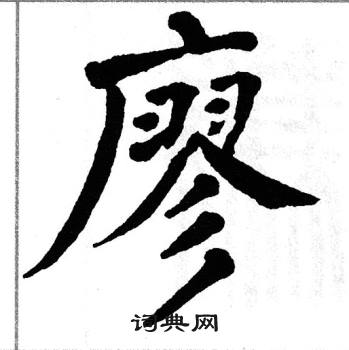 廖
词典网